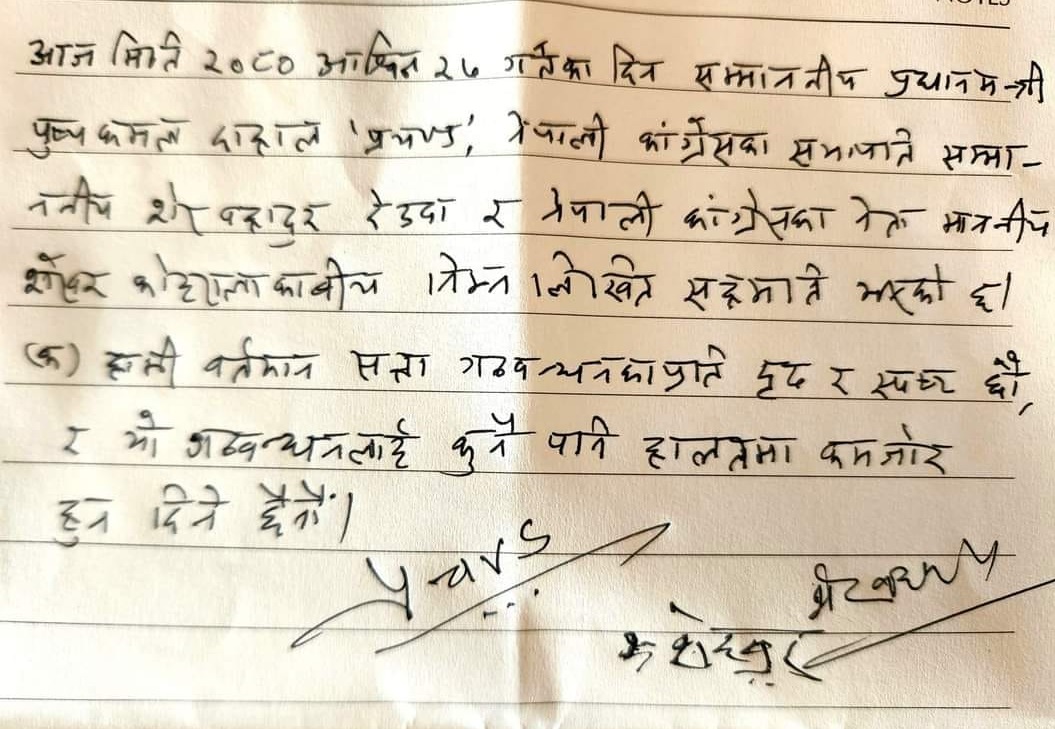 NOTES
आज मिति २०८० आश्विन २६ गतेका दिन सम्माननीय प्रधानमन्त्री
पुष्पकमल दाहाल 'प्रचण्ड', नेपाली कांग्रेसका सभापति सम्मा-
ननीय शेरबहादुर देउवा र नेपाली कांग्रेसका नेता माननीय
शेखर कोइराला काबीच निम्न लिखित सहमति भएको छ।
(क) हामी वर्तमान सत्ता गठबन्धनकाप्रति दृढ र स्पष्ट छौं,
र यो गठबन्धनलाई कुनै पनि हालतमा कमजोर
हुन दिने छैनौं।